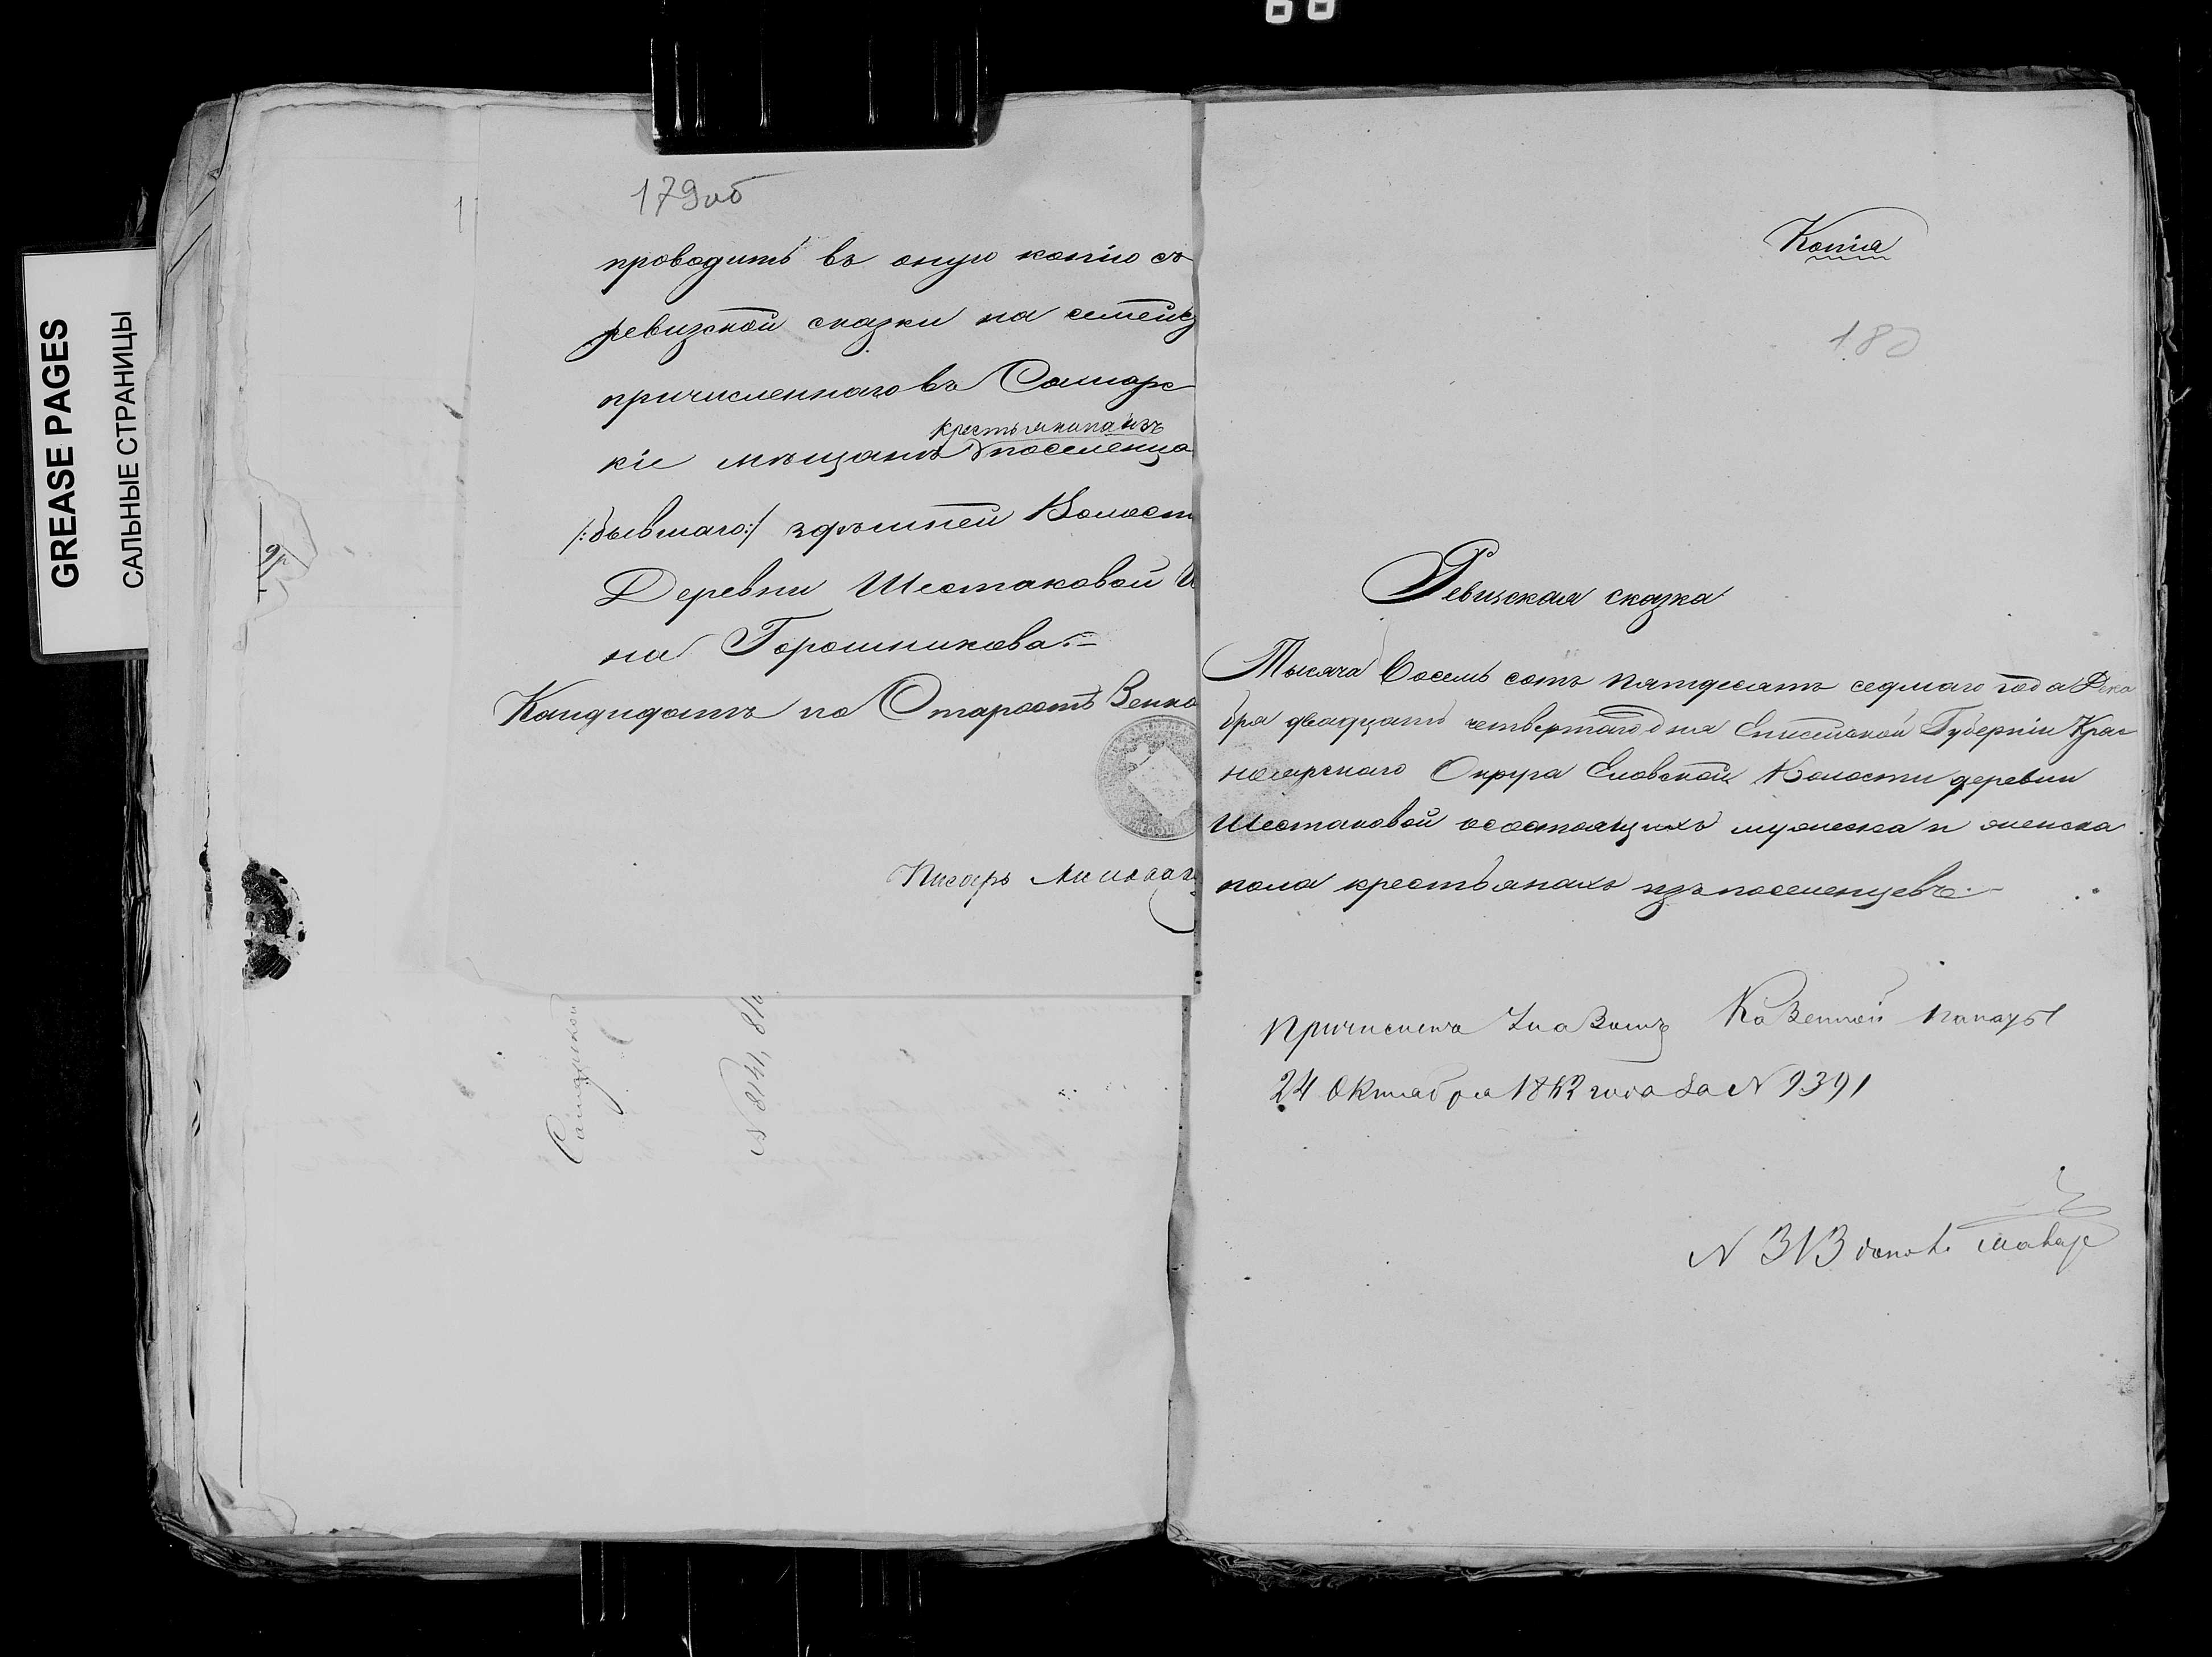 GREASE PAGES
САЛЬНЫЕ СТРАНИЦЫ
179об
проводить въ оную копію съ
ревизской сказки на семейс
причисленнаго въ Самарс
кіе мѣщанъ крестьянина изъ поселенца
/:бывшаго:/ здѣшней Волост
Деревни Шестаковой И
на Горошникова.
Кандидатъ по Старостѣ
Писарь
№ 814, 81
Копія
180
Ревизская сказка
Тысяча восемь сотъ пятдесятъ седмаго года Дека
бря двадцать четвертаго дня Енисейской Губерніи Крас
ноярскаго Округа Еловской Волости деревни
Шестаковой о состоящихъ мужеска и женска
пола крестьянахъ изъ поселенцевъ.
Причисленъ Казенной палаты
24 Октября 18 года за N 9391
N 313